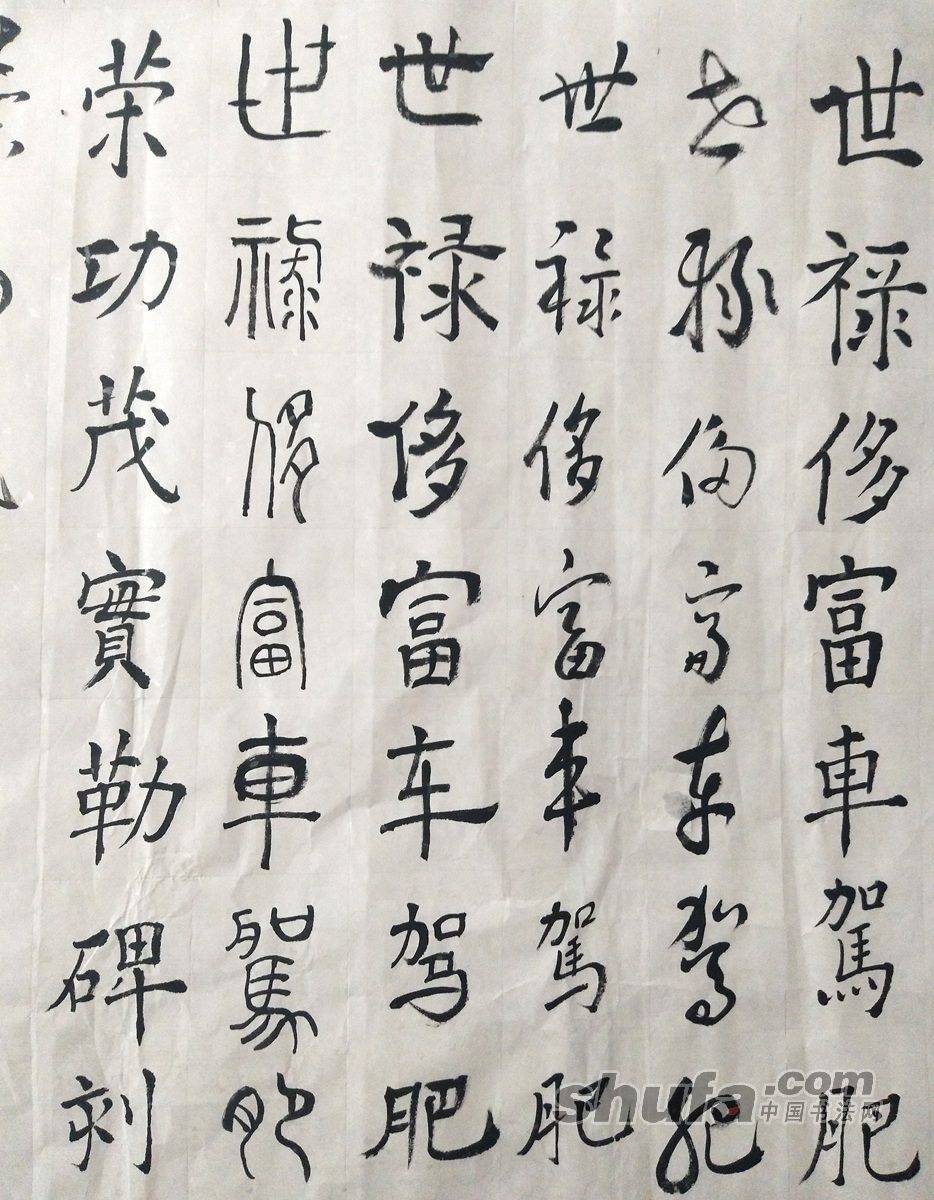 世祿侈富車駕肥
世禄侈富车驾肥
世禄侈富車駕肥
世禄侈富车驾肥
世祿侈富車駕肥
荣功茂實勒碑刻
shufa.com
中国书法网